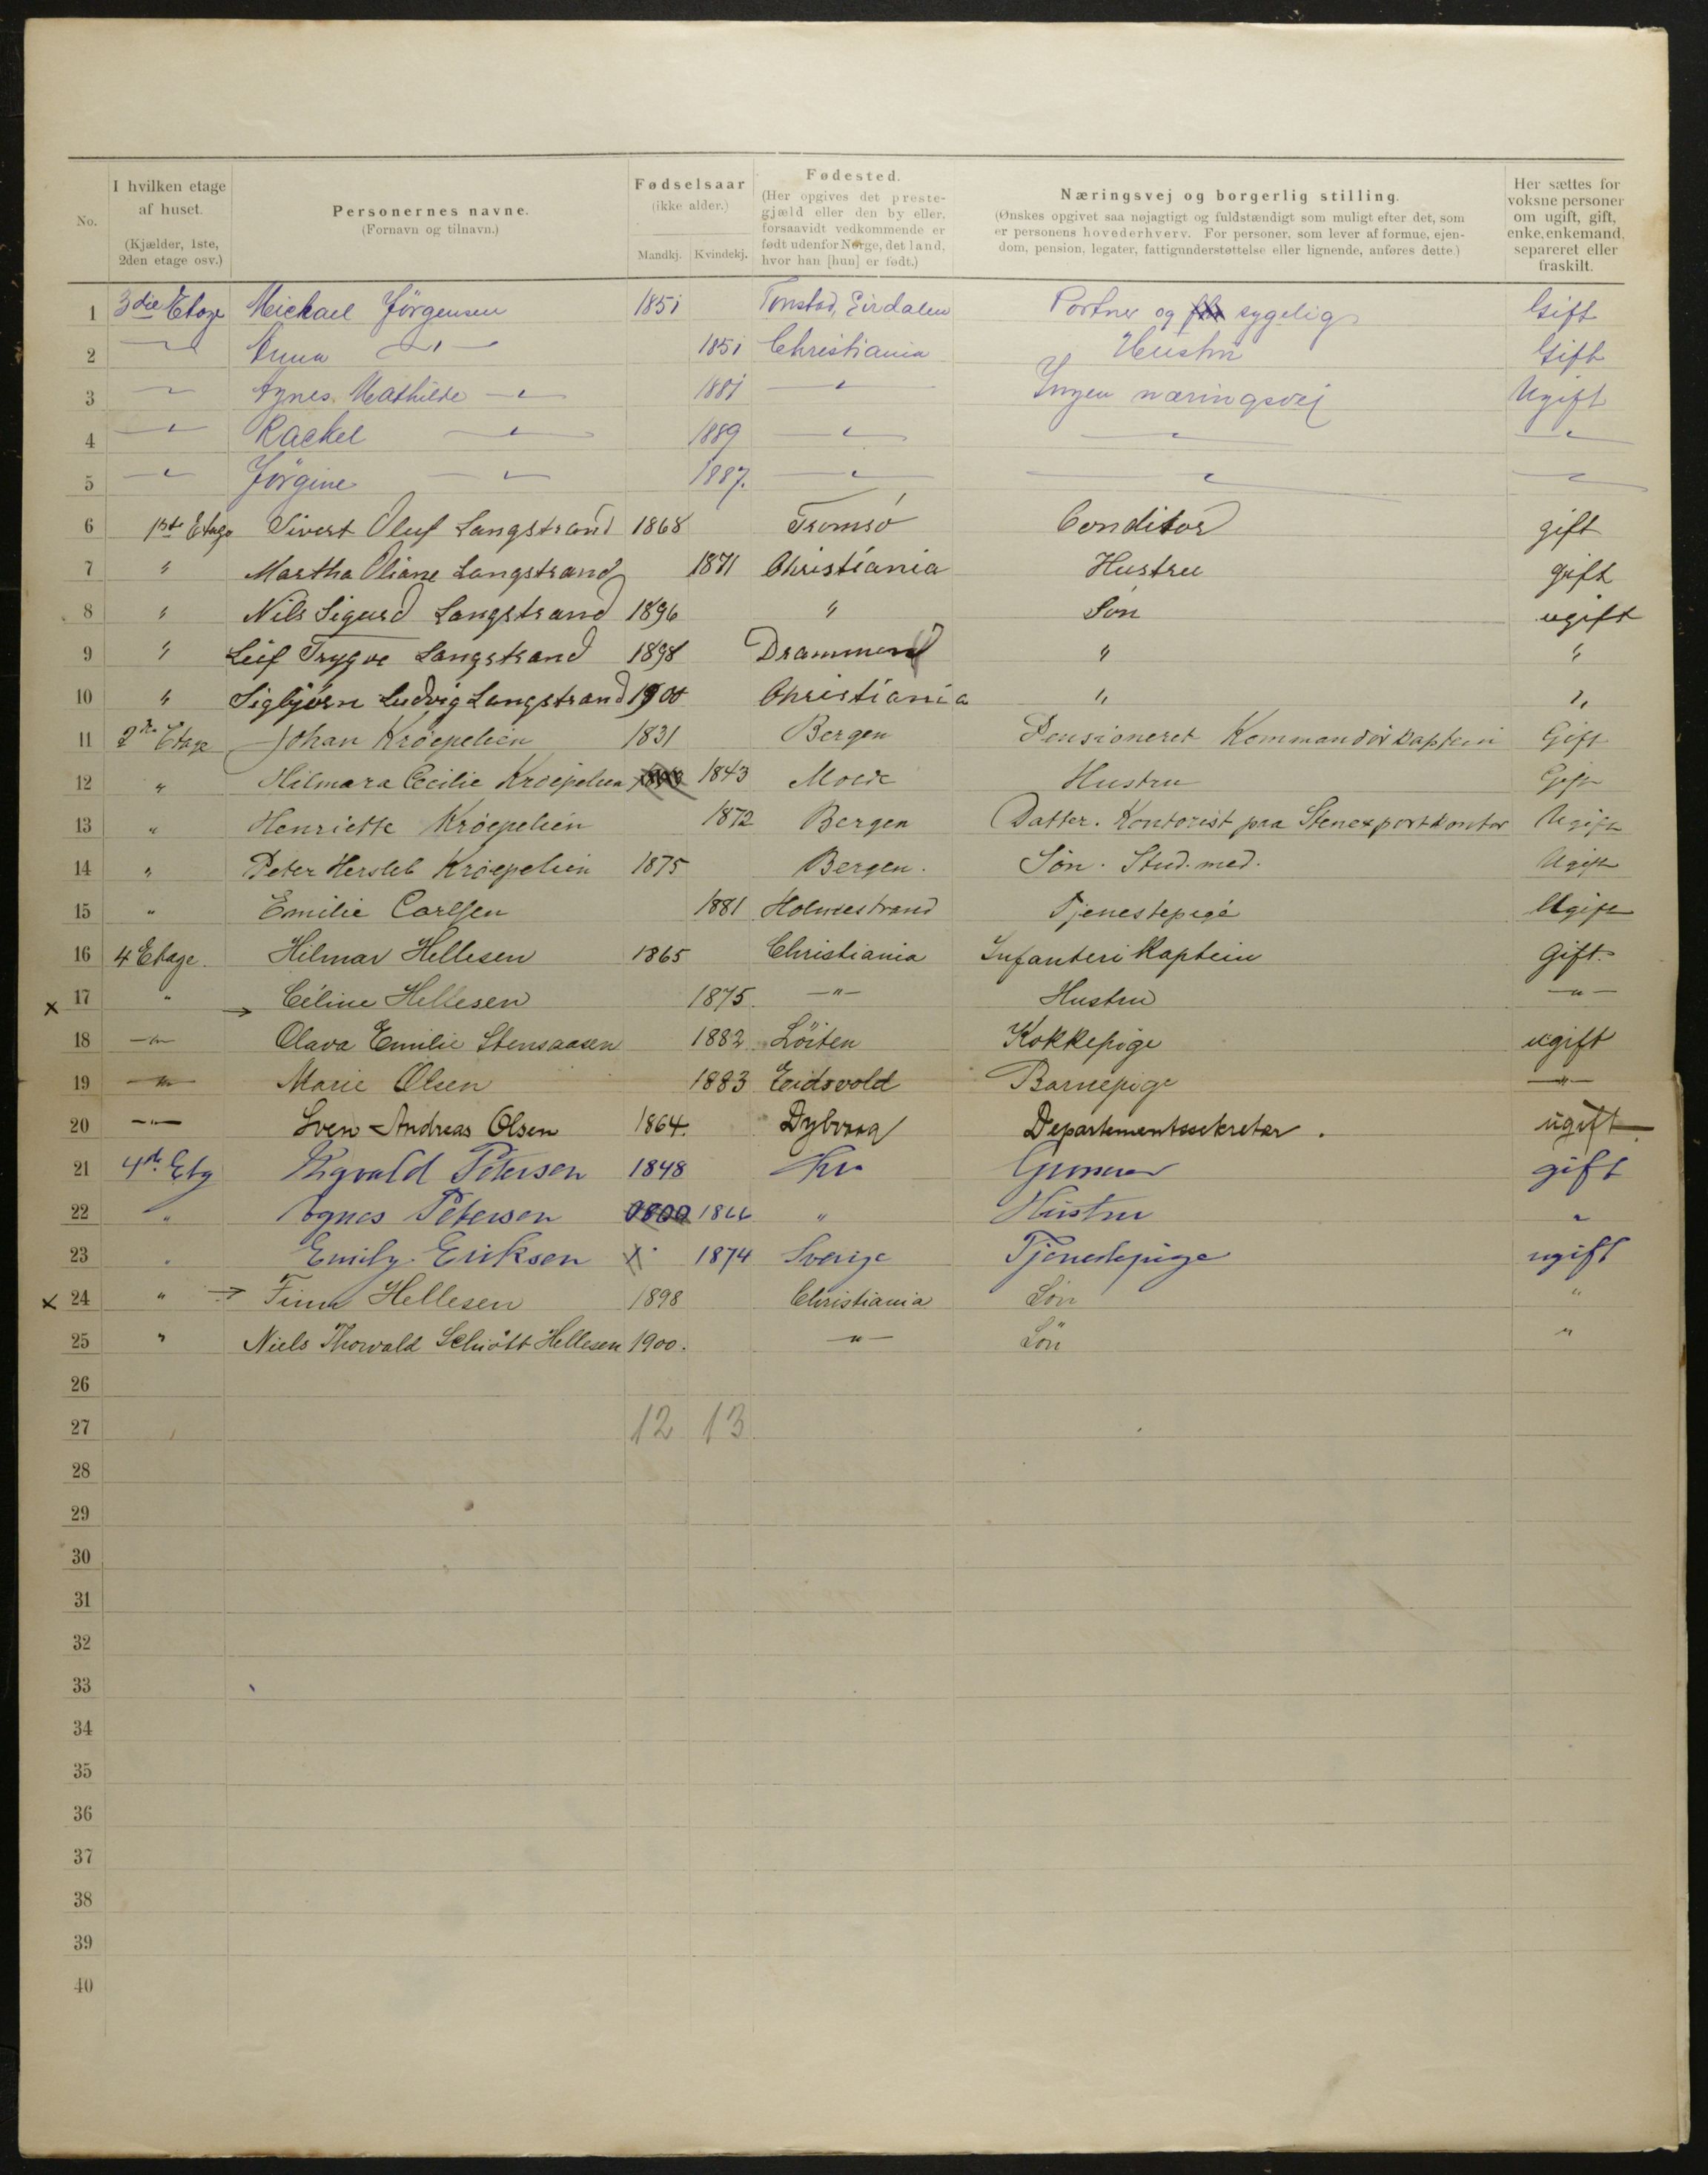 No. | I hvilken etage af huset. (Kjælder, 1ste, 2den etage osv.) | Personernes navne. (Fornavn og tilnavn.) | Fødselsaar (ikke alder.) Mandkj. Kvindekj. | Fødested. (Her opgives det prestegjæld eller den by eller, forsaavidt vedkommende er født udenfor Norge, det land, hvor han [hun] er født.) | Næringsvej og borgerlig stilling. (Ønskes opgivet saa nøjagtigt og fuldstændigt som muligt efter det, som er personens hovederhverv. For personer, som lever af formue, ejendom, pension, legater, fattigunderstøttelse eller lignende, anføres dette.) | Her sættes for voksne personer om ugift, gift, enke, enkemand, separeret eller fraskilt.
1 3die Etage Michael Jörgensen 1851 Tonstad, Sirdalen Portner og sygelig Gift
2 — " — Anna — " — 1851 Christiania Hustru Gift
3 — " — Agnes Mathilde — " — 1881 — " — Ingen næringsvej Ugift
4 — " — Rackel — " — 1889 — " — — " — — " —
5 — " — Jörgine — " — 1887. — " — — " — — " —
6 1ste Etage Sivert Oluf Langstrand 1868 Tromsö Conditor gift
7 " Martha Oliane Langstrand 1871 Christiania Hustru gift
8 " Nils Sigurd Langstrand 1896 " Søn ugift
9 " Leif Trygve Langstrand 1898 Drammen " "
10 " Sigbjørn Ludvig Langstrand 1900 Christiania " "
11 2den Etage Johan Krøepelien 1831 Bergen Pensioneret Kommandörkaptein Gift
12 " Hilmara Cecilie Krøepelien 1843 Molde Hustru Gift
13 " Henriette Krøepelien 1872 Bergen Datter. Kontorist paa Stenexportkontor Ugift
14 " Peter Hersleb Krøepelien 1875 Bergen. Søn. Stud. med. Ugift
15 " Emilie Carlsen 1881 Holmestrand Tjenestepige Ugift
16 4 Etage. Hilmar Hellesen 1865 Christiania Infanteri Kaptein Gift.
x 17 " → Céline Hellesen 1875. — " — Hustru — " —
18 — " — Olava Emilie Stensaasen 1882 Löiten Kokkepige ugift
19 — " — Marie Olsen 1883 Eidsvold Barnepige — " —
20 — " — Sven Andreas Olsen 1864. Dybvaag Departementssekretær. ugift
21 4de Etg Sigvald Petersen 1848 Kra gift
22 " Agnes Petersen 1866 " Hustru "
23 " Emily Eriksen x 1874 Sverige Tjenestepige ugift
x 24 " → Finn Hellesen 1898 Christiania Sön "
25 " Niels Thorvald Schiött Hellesen 1900. — " — Sön "
26
27 12 13
28
29
30
31
32
33
34
35
36
37
38
39
40